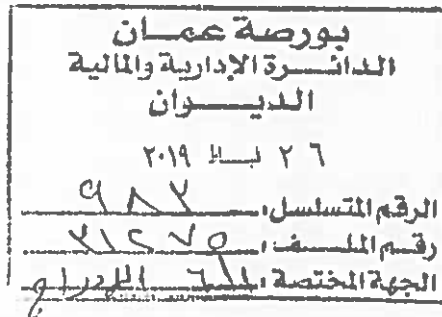 بورصة عمان
الدائرة الإدارية والمالية
الديوان
٢٦ شباط ٢٠١٩
الرقم المتسلسل: ٩٨٢
رقم الملف: ٣١٢٧٥
الجهة المختصة: الإدراج